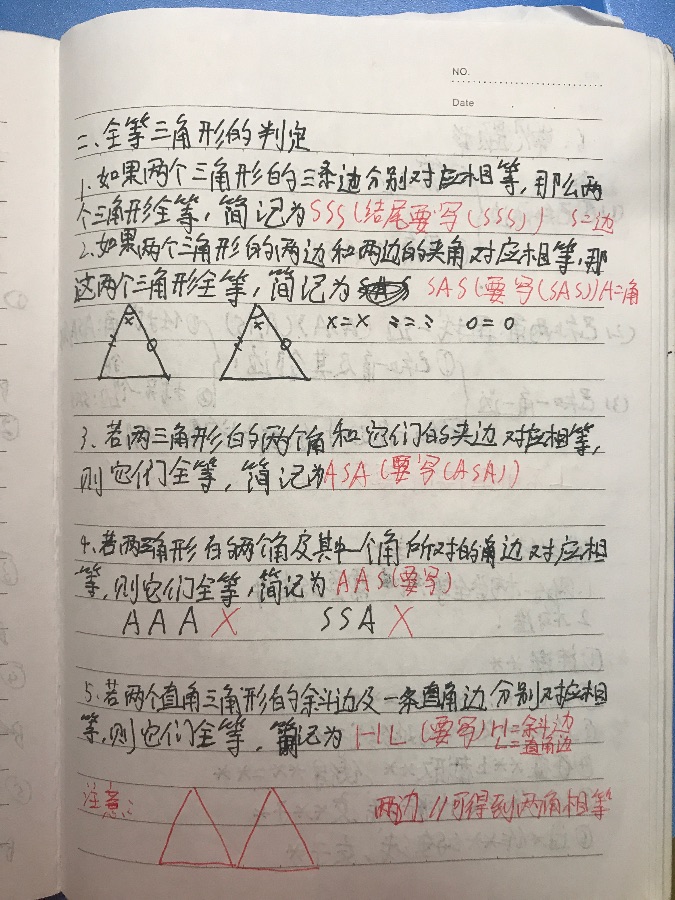 NO.
Date
二、全等三角形的判定
1.如果两个三角形的三条边分别对应相等,那么两
个三角形全等,简记为SSS(结尾要写(SSS)) S=边
2.如果两个三角形的两边和两边的夹角对应相等,那
这两个三角形全等,简记为 SAS(要写(SAS))A=角
x x
x=x ミ=ミ 0=0
3.若两三角形的两个角和它们的夹边对应相等,
则它们全等,简记为ASA(要写(ASA))
4.若两三角形的两个角及其中一个角所对的边对应相
等,则它们全等,简记为AAS(要写)
AAA X SSA X
5.若两个直角三角形的余斗边及一条直角边分别对应相
等,则它们全等,简记为 HL(要写)H=余斗边
L=直角边
注意: 两边//可得到两角相等